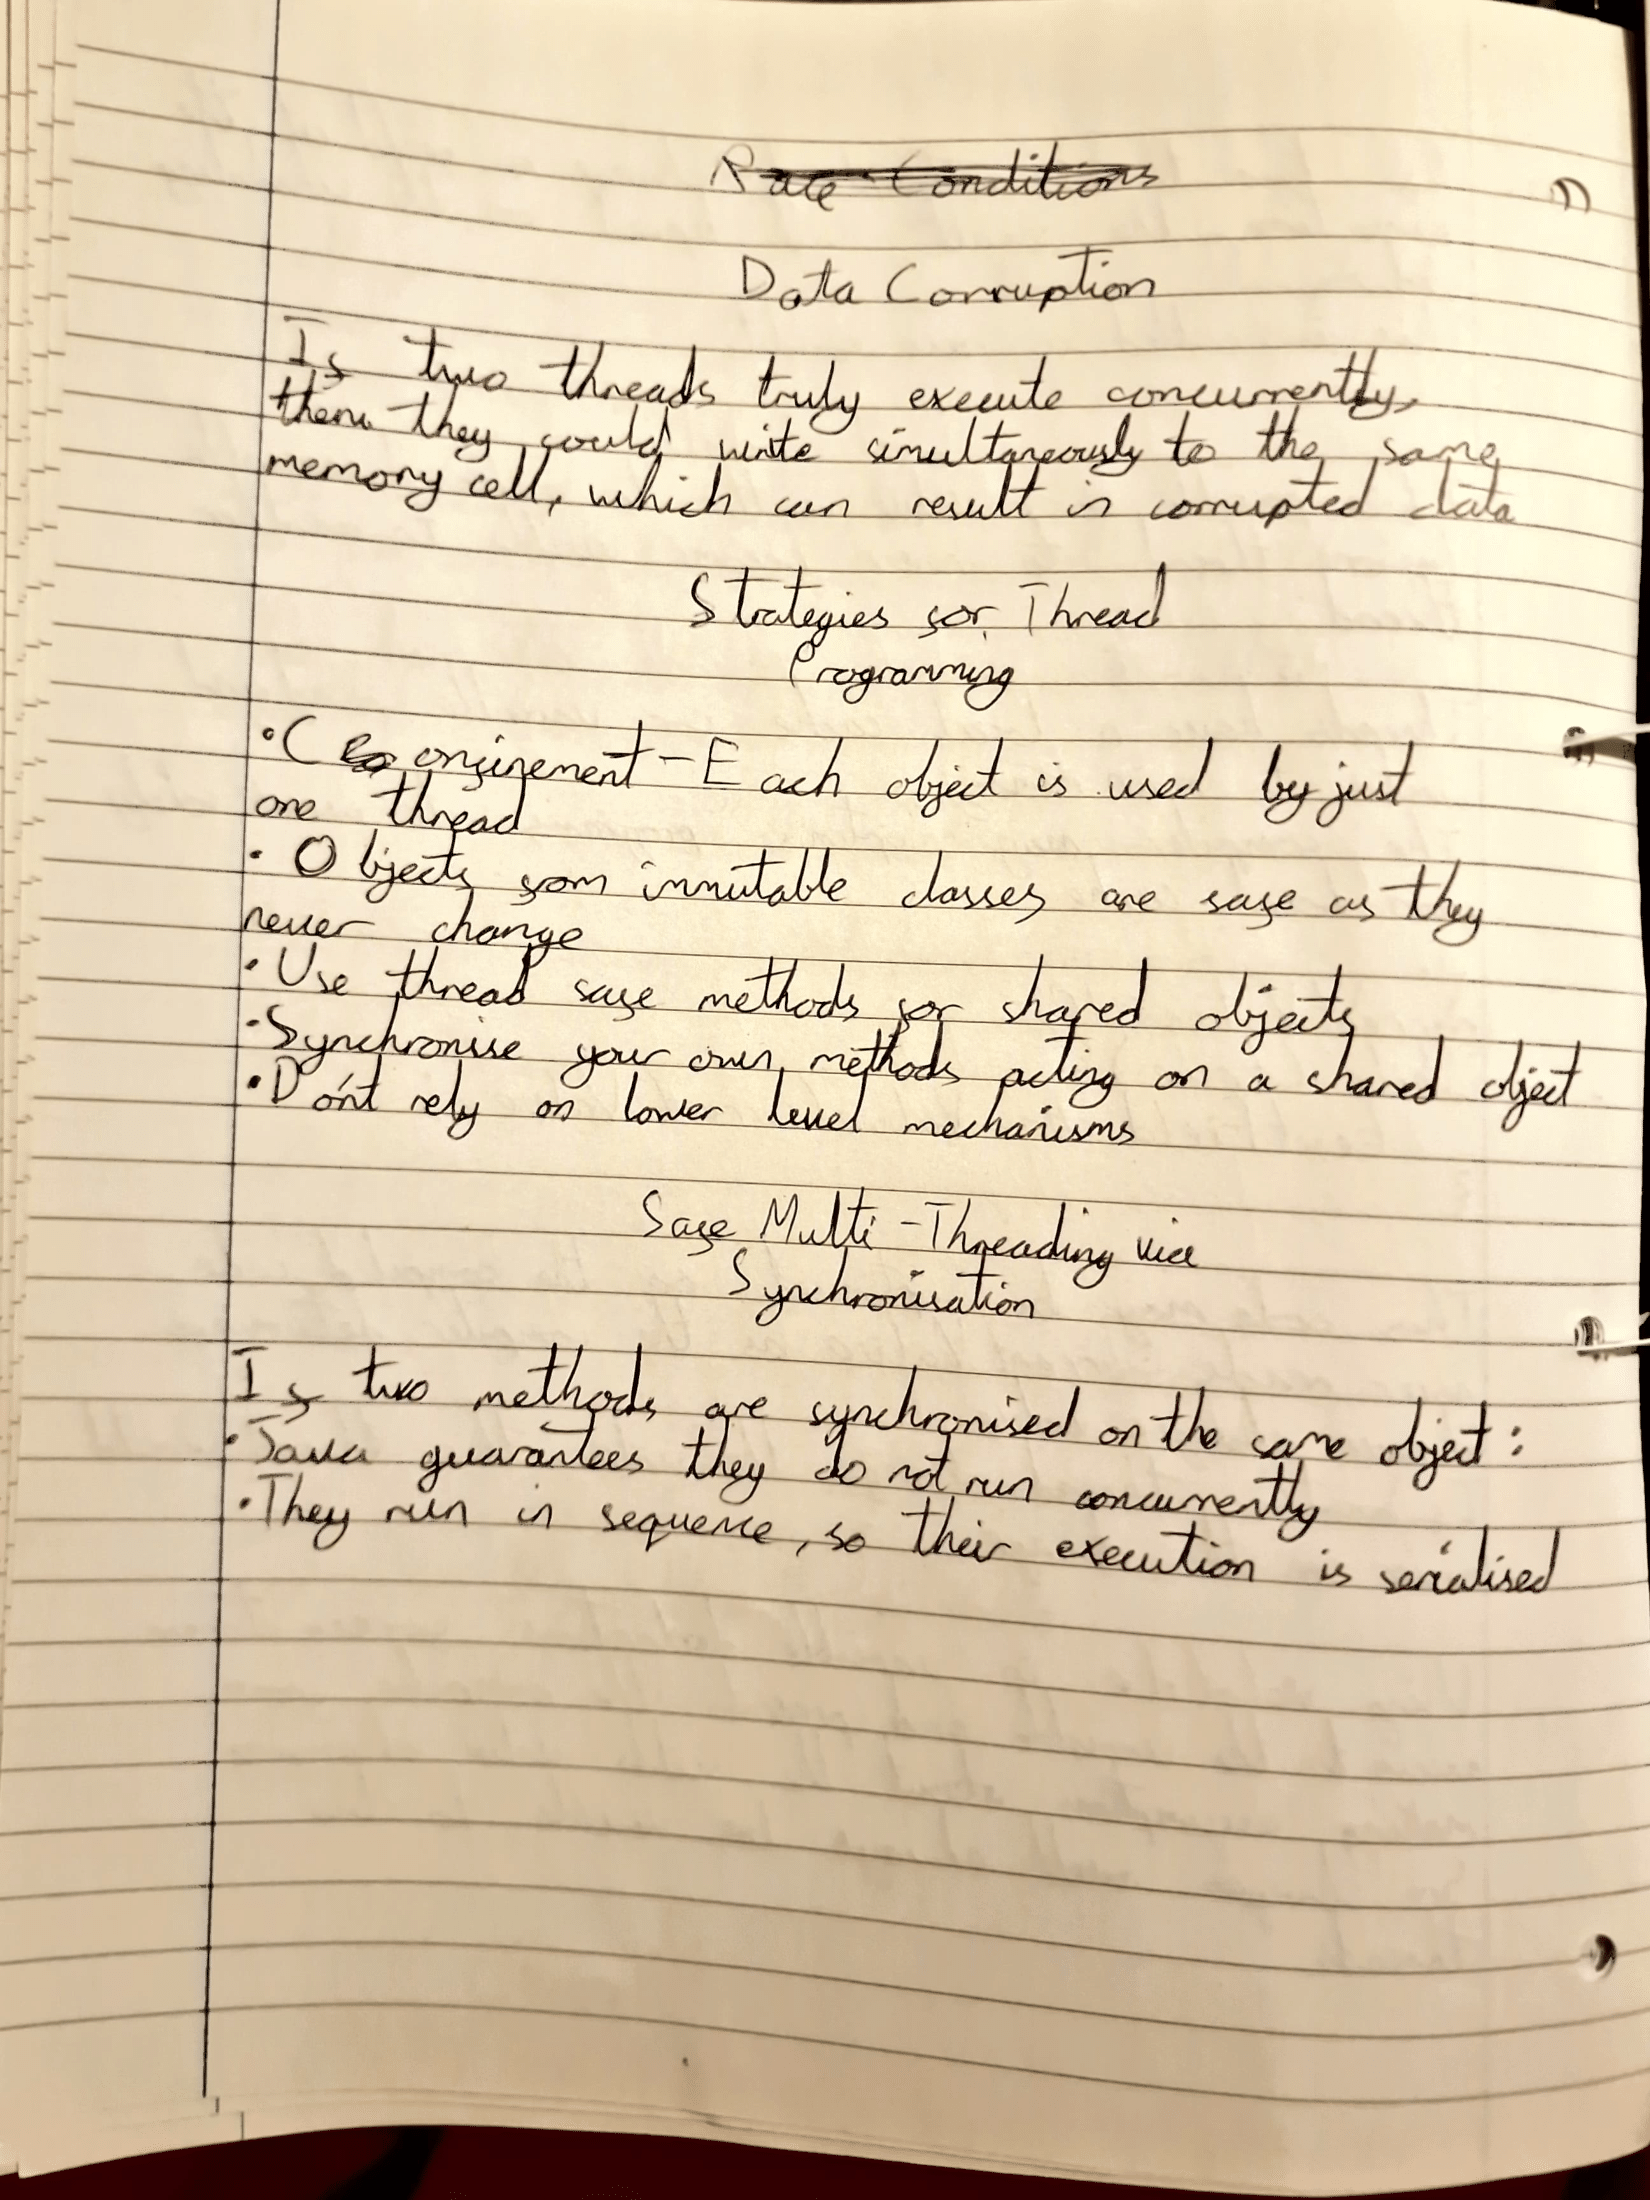 Race Conditions
Data Corruption
If two threads truly execute concurrently,
then they could write simultaneously to the same
memory cell, which can result in corrupted data
Strategies for Thread
Programming
• Confinement - Each object is used by just
one thread
• Objects from immutable classes are safe as they
never change
• Use thread safe methods for shared objects
• Synchronise your own methods acting on a shared object
• Don't rely on lower level mechanisms
Safe Multi-Threading via
Synchronisation
If two methods are synchronised on the same object:
• Java guarantees they do not run concurrently
• They run in sequence, so their execution is serialised